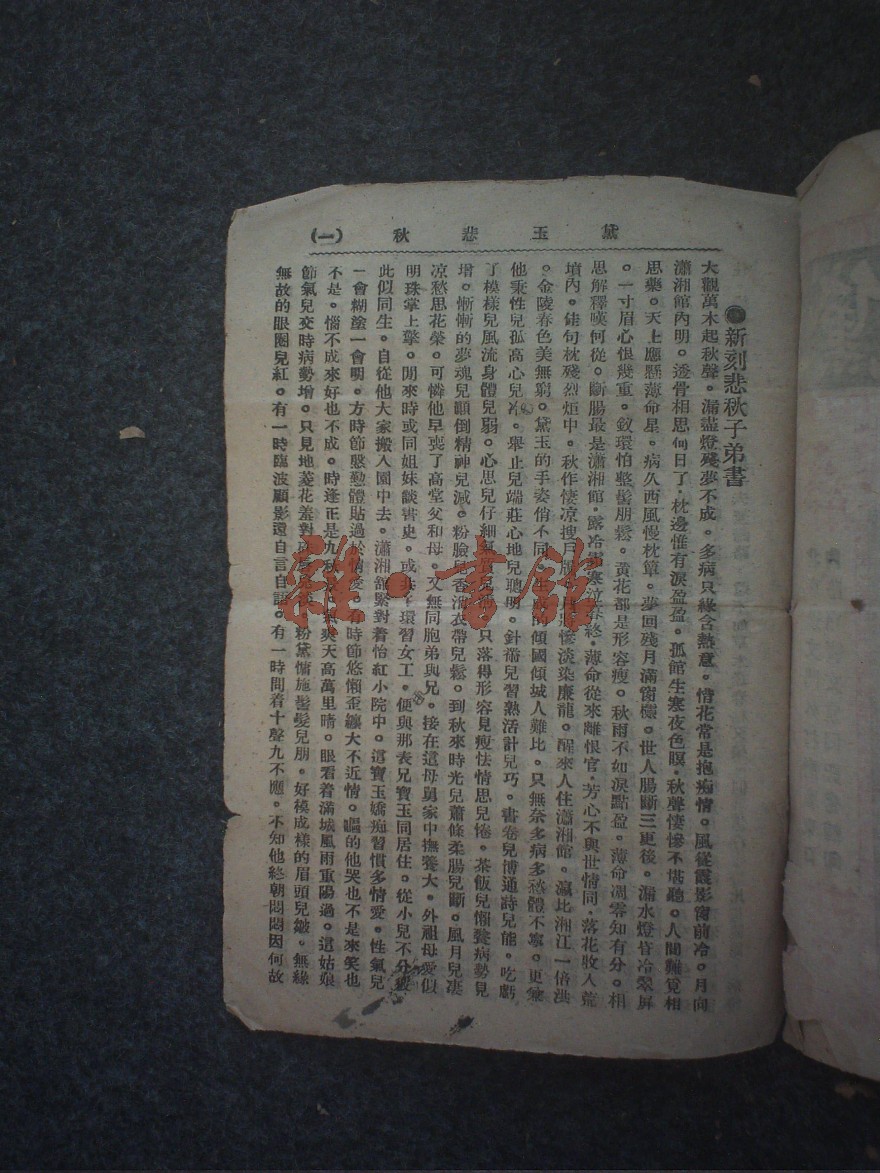 黛玉悲秋 (一)
●新刻悲秋子弟書
大觀萬木起秋聲。漏盡燈殘夢不成。多病只緣含熱意。惜花常是抱痴情。風從霞影窗前冷。月向
瀟湘館內明。透骨相思何日了。枕邊惟有淚盈盈。孤館生寒夜色暝。秋聲悽慘不堪聽。人間難覓相
思藥。天上應懸薄命星。病久西風慢枕簟。夢回殘月滿窗櫺。世人腸斷三更後。漏水燈昏冷翠屏
。一寸眉心恨幾重。釵環怕整鬢朋鬆。黃花都是形容瘦。秋雨不如淚點盈。薄命凋零知有分。相
思解釋嘆何從。斷腸最是瀟湘館。露冷 寒泣 終。薄命從來離恨官。芳心不與世情同。落花收入荒
墳內。佳句枕殘烈炬中。秋作悽凉搜戶 慘淡染廉龍。醒來人住瀟湘館。瀛比湘江一倍洪
。金陵春色美無窮。黛玉的手姿俏不同。生成的傾國傾城人難比。只無奈多病多愁體不寧。更兼
他秉性兒孤高心兒冷。舉止兒端莊心地兒聰明。針黹兒習熟活計兒巧。書卷兒博通詩兒能。吃虧
了模樣兒風流身體兒弱。心思兒仔細 只落得形容見瘦怯情思兒倦。茶飯兒懶餐病勢見
增。慚慚的夢魂兒顛倒精神兒減。粉臉兒香消衣帶兒鬆。到秋來時光兒蕭條柔腸兒斷。風月兒凄
凉愁思花榮。可憐他早喪了高堂父和母。又無同胞弟與兄。接在這母舅家中撫養大。外祖母愛似
明珠掌上擎。閒來時或同姐妹談書史。或共 環習女工。便與那表兄寶玉同居住。從小兒不分彼
此似同生。自從他大家搬入園中去。瀟湘舘緊對着怡紅小院中。這寶玉嬌痴習慣多情愛。性氣兒
一會糊塗一會明。方時節慇懃體貼過於情愛。有時節悠懶歪纏大不近情。嘔的他哭也不是來笑也
不是。惱不成來好也不成。時逢正是九秋 氣爽天高萬里晴。眼看着滿城風雨重陽過。這姑娘
節氣兒交時病勢增。只見地菱花羞對 粉黛慵施鬢髮兒朋。好模成樣的眉頭兒皺。無緣
無故的眼圈兒紅。有一時臨波顧影還自言自語。有一時間着十聲九不應。不知他終朝悶悶因何故
雜·書館